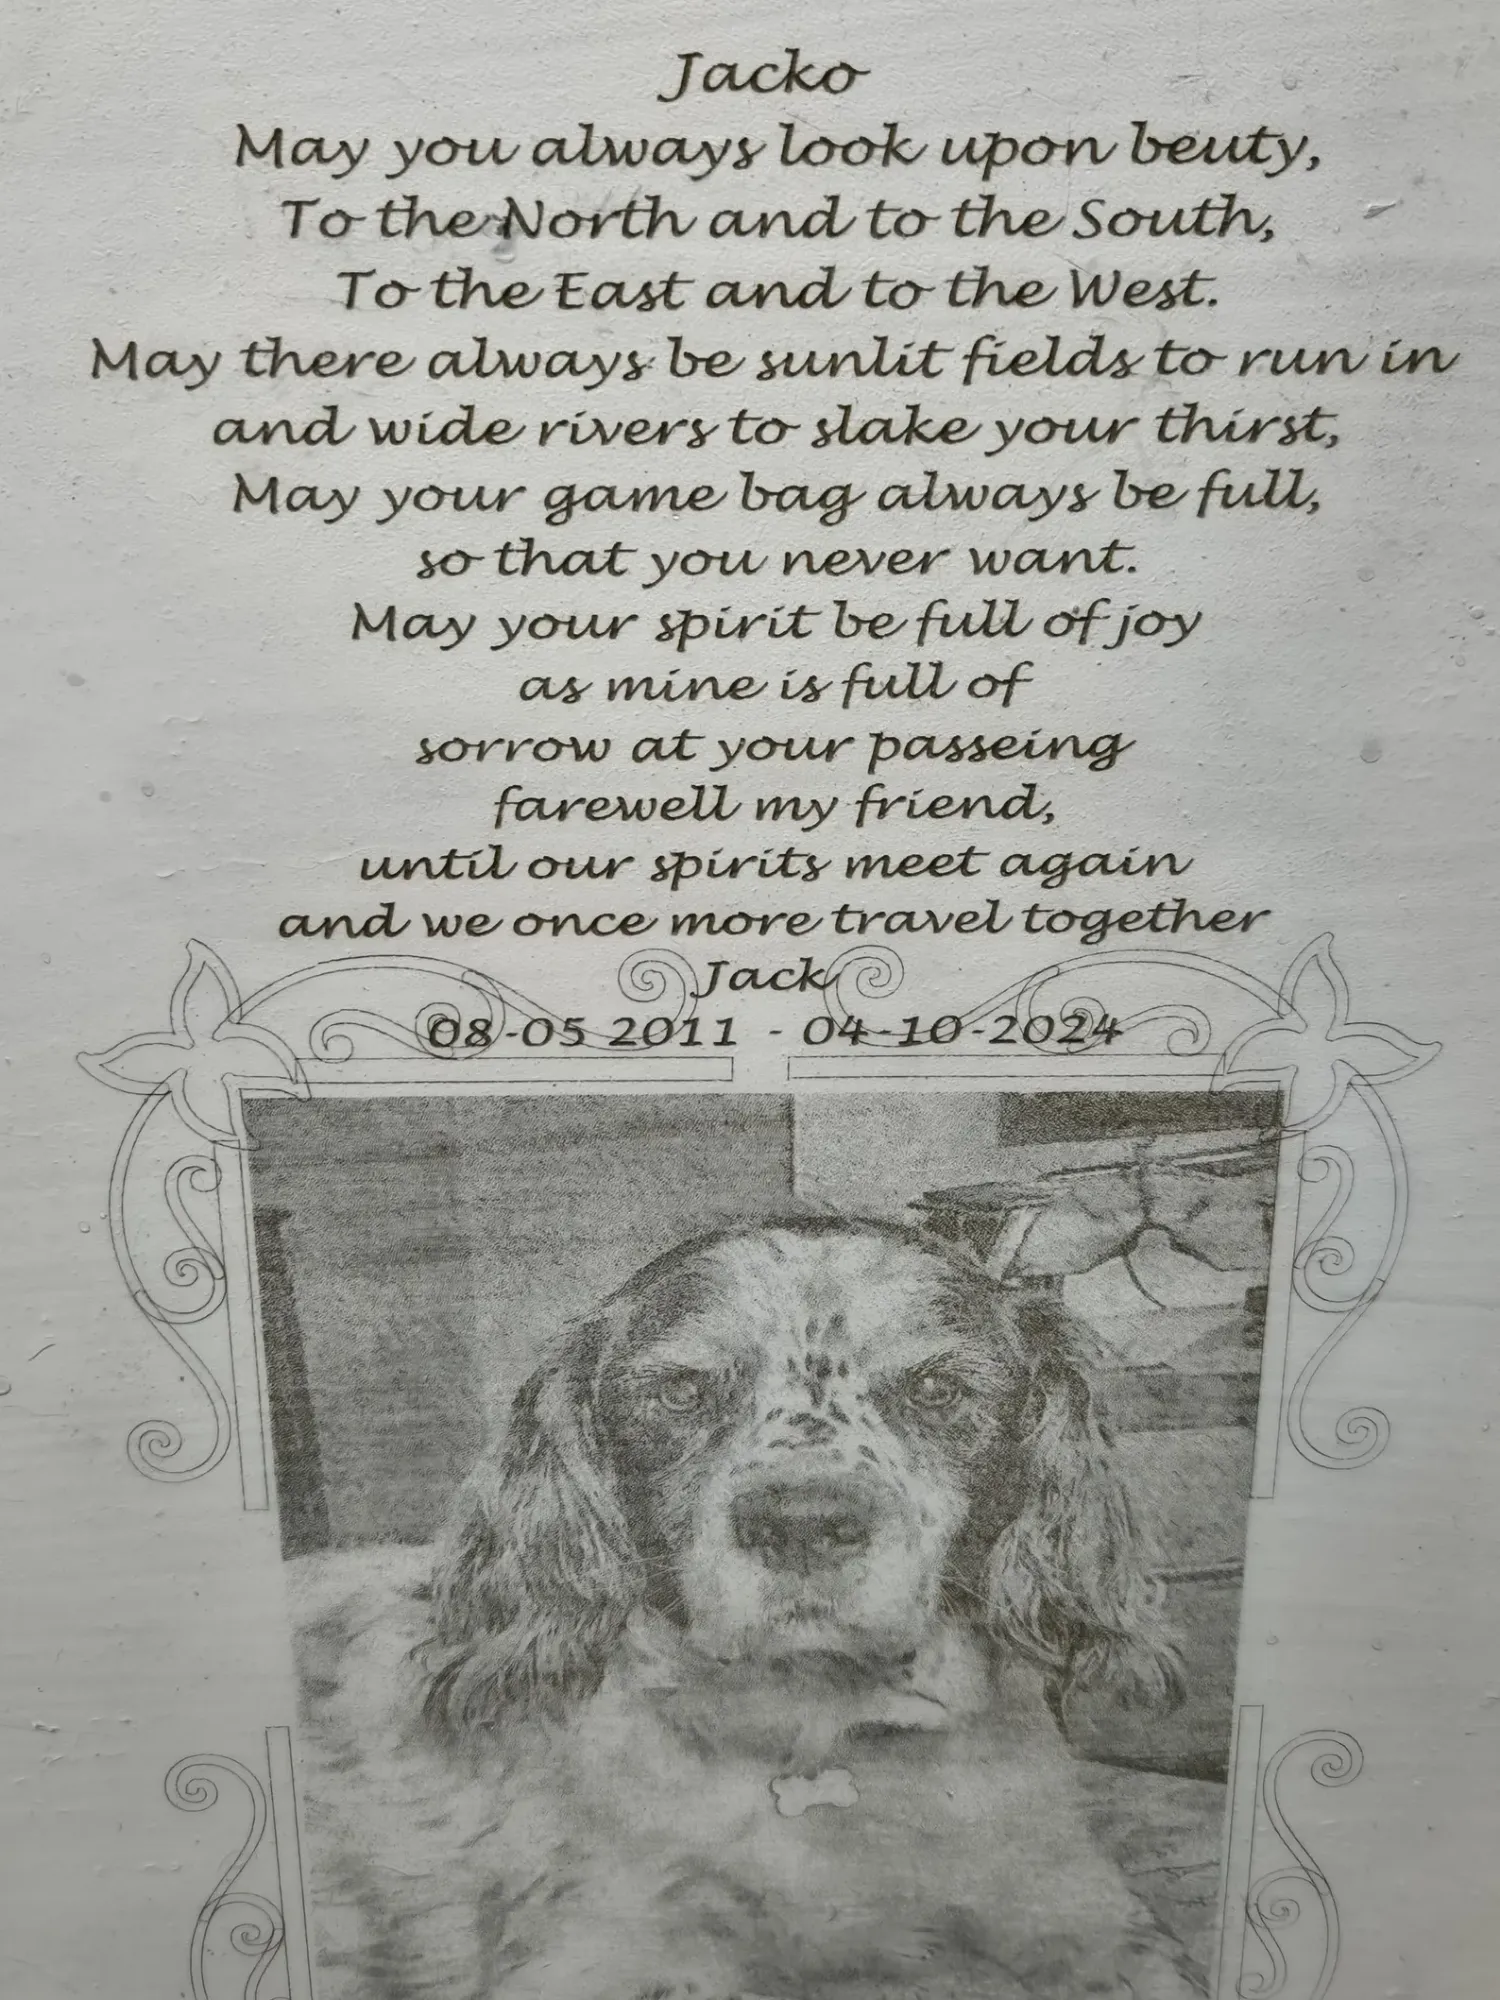 Jacko
May you always look upon beuty,
To the North and to the South,
To the East and to the West.
May there always be sunlit fields to run in
and wide rivers to slake your thirst,
May your game bag always be full,
so that you never want.
May your spirit be full of joy
as mine is full of
sorrow at your passeing
farewell my friend,
until our spirits meet again
and we once more travel together
Jack
08-05 2011 - 04-10-2024